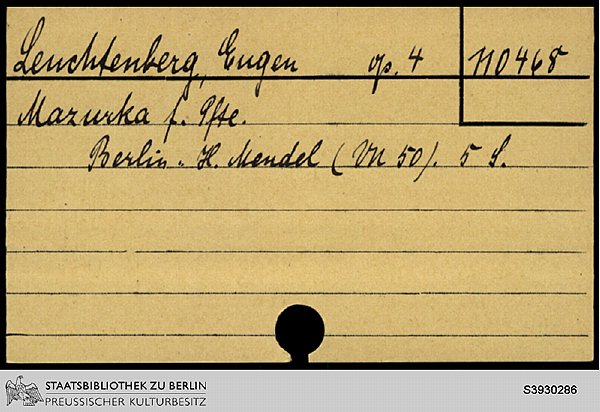 Leuchtenberg, Eugen op. 4 110468
Mazurka f. Pfte.
Berlin: H. Mendel (VN 50). 5 S.
STAATSBIBLIOTHEK ZU BERLIN
PREUSSISCHER KULTURBESITZ
S3930286